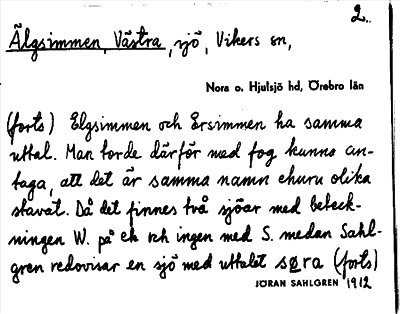 2.
Älgsimmen, Västra, sjö, Vikers sn,
Nora o. Hjulsjö hd, Örebro län
(forts) Elgsimmen och Ersimmen ha samma
uttal. Man torde därför med fog kunna an-
taga, att det är samma namn ehuru olika
stavat. Då det finnes två sjöar med beteck-
ningen W. på ek och ingen med S. medan Sahl-
gren redovisar en sjö med uttalet søra (forts)
JÖRAN SAHLGREN 1912